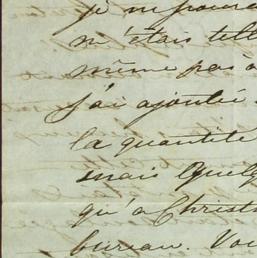 je m'
m'étais tell
même pas a
j'ai ajouté
la quantité
mais quelq
qu'a Christ
bureau. Vou